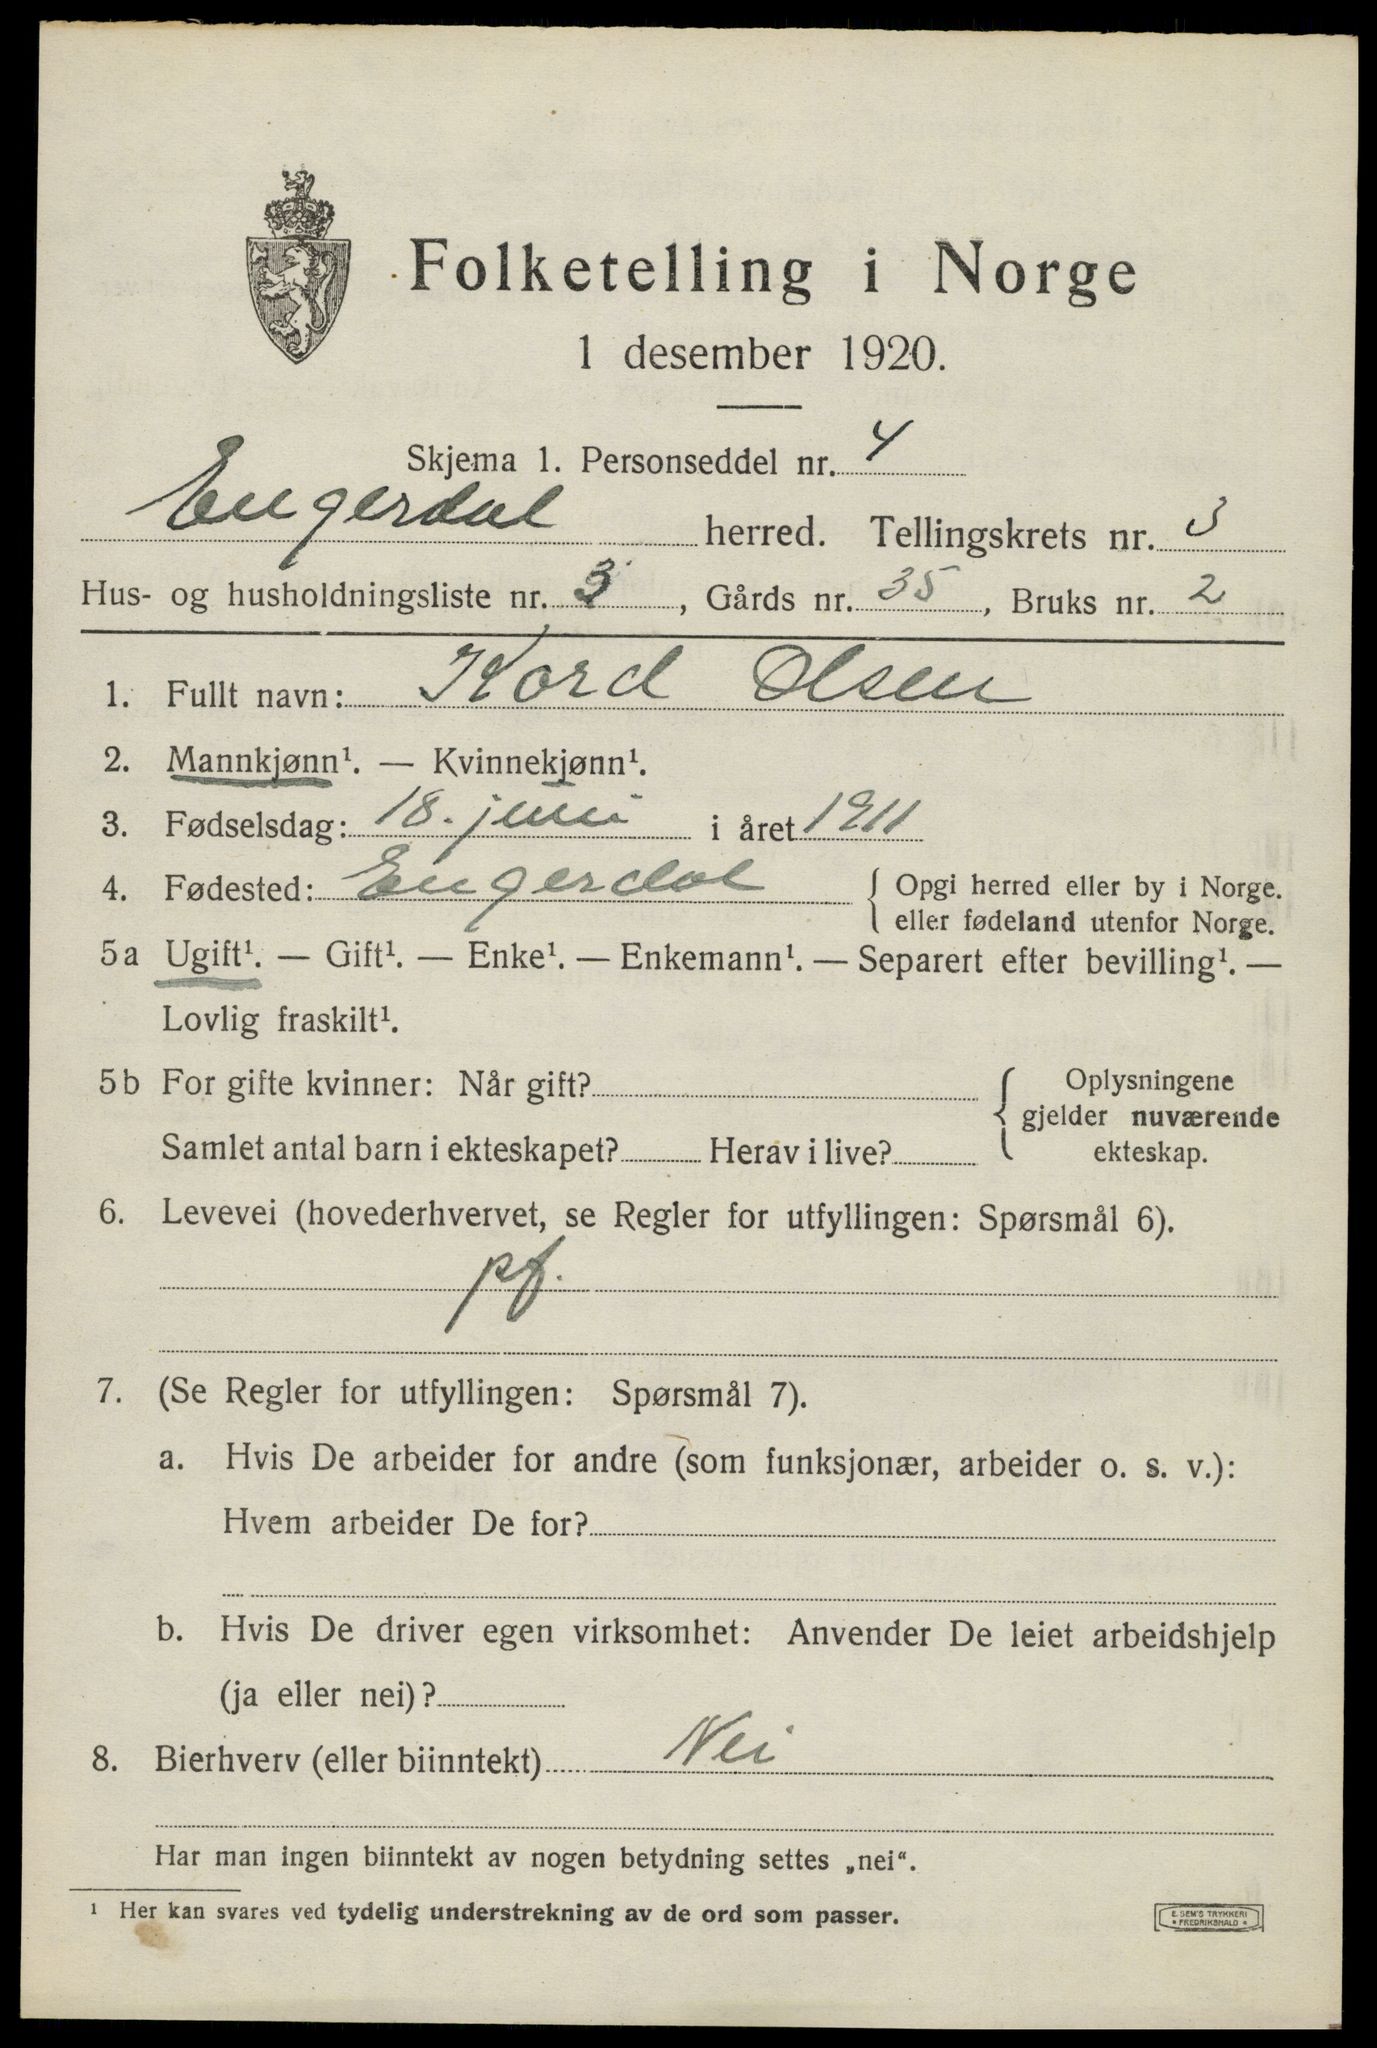 Folketelling i Norge
1 desember 1920.
Skjema 1. Personseddel nr. 4
Engerdal herred. Tellingskrets nr. 3
Hus- og husholdningsliste nr. 3, Gårds nr. 35, Bruks nr. 2
1. Fullt navn: Kord Olsen
2. Mannkjønn¹. — Kvinnekjønn¹.
3. Fødselsdag: 18. juni i året 1911
4. Fødested: Engerdal { Opgi herred eller by i Norge.
eller fødeland utenfor Norge.
5a Ugift¹. — Gift¹. — Enke¹. — Enkemann¹. — Separert efter bevilling¹. —
Lovlig fraskilt¹.
5b For gifte kvinner: Når gift? { Oplysningene
gjelder nuværende
Samlet antal barn i ekteskapet? Herav i live? ekteskap.
6. Levevei (hovederhvervet, se Regler for utfyllingen: Spørsmål 6).
pf.
7. (Se Regler for utfyllingen: Spørsmål 7).
a. Hvis De arbeider for andre (som funksjonær, arbeider o. s. v.):
Hvem arbeider De for?
b. Hvis De driver egen virksomhet: Anvender De leiet arbeidshjelp
(ja eller nei)?
8. Bierhverv (eller biinntekt) Nei
Har man ingen biinntekt av nogen betydning settes „nei“.
¹ Her kan svares ved tydelig understrekning av de ord som passer.
E. SEM'S TRYKKERI
* FREDRIKSHALD *